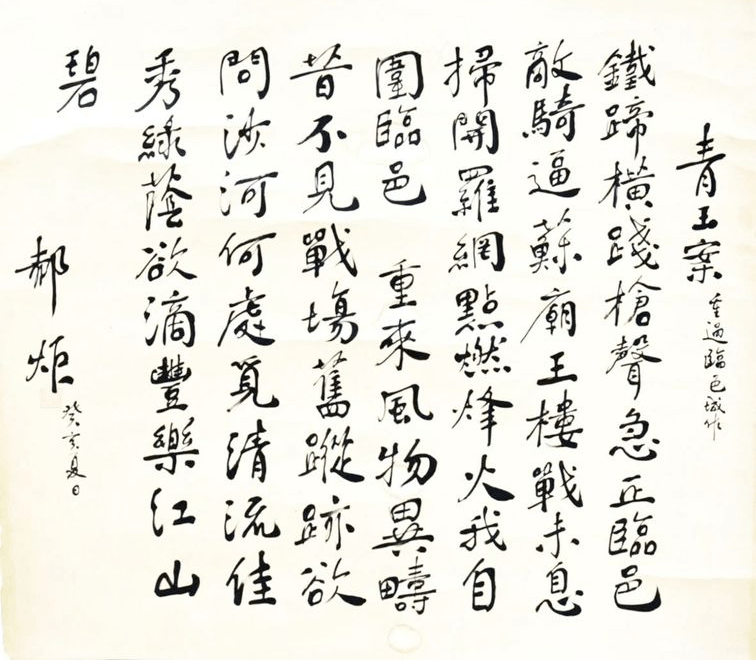 青玉案 重過臨邑城作
鐵蹄橫踐槍聲急正臨邑
敵騎逼蘇廟王樓戰未息
掃開羅網點燃烽火我自
圍臨邑 重來風物異疇
昔不見戰場舊蹤跡欲
問沙河何處覓清流佳
秀綠蔭欲滴豐樂江山
碧
郝炬 癸亥夏日